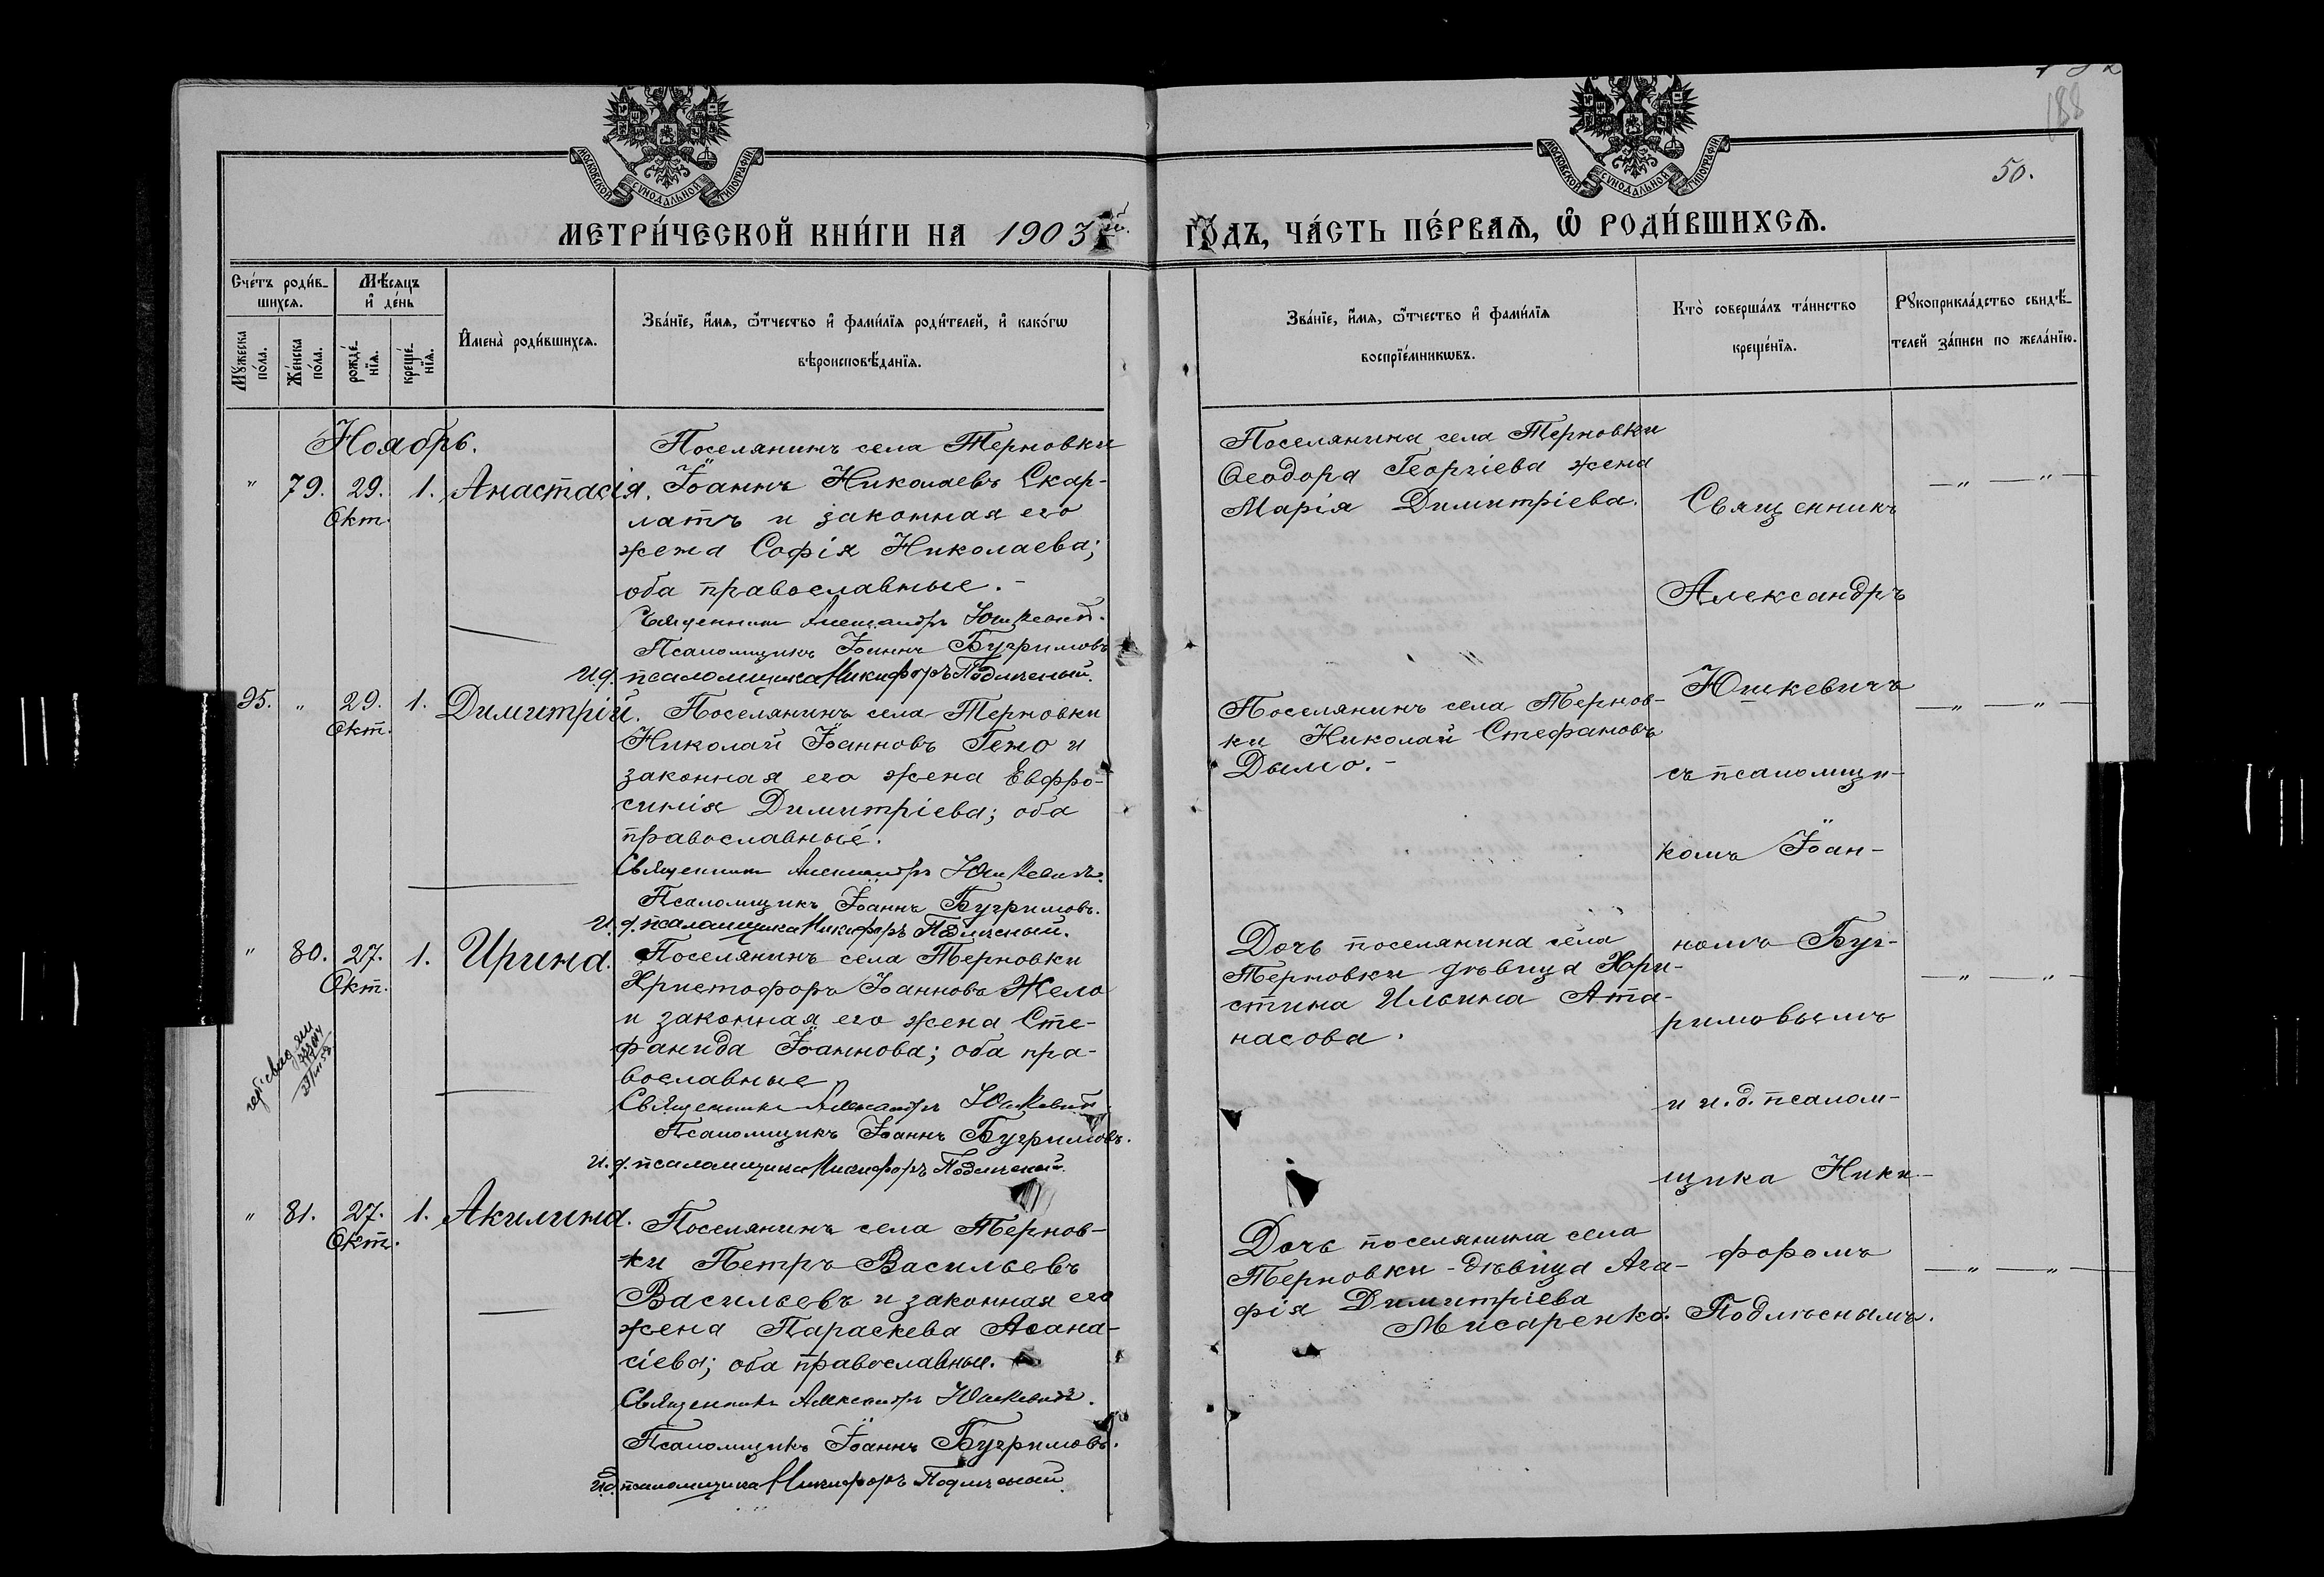 188
50.
МОСКОВСКОЙ СѴНОДАЛЬНОЙ ТИПОГРАФІИ
МОСКОВСКОЙ СѴНОДАЛЬНОЙ ТИПОГРАФІИ
МЕТРИ́ЧЕСКОЙ КНИ́ГИ НА 1903й.
ГО́ДЪ, ЧА́СТЬ ПЕ́РВАѦ, Ѿ РОДИ́ВШИХСѦ.
Сче́тъ роди́в-
шихсѧ.
Мꙋжеска по́ла.
Же́нска по́ла.
Мѣ́сѧцъ
и҆ де́нь
рожде́-нїѧ.
креще́-нїѧ.
И҆мена̀ роди́вшихсѧ.
Зва́нїе, и҆́мѧ, ѻ҆́тчество и҆ фами́лїѧ роди́телей, и҆ како́гѡ
вѣроисповѣ́данїѧ.
Зва́нїе, и҆́мѧ, ѻ҆́тчество и҆ фами́лїѧ
воспрїе́мникѡвъ.
Кто̀ соверша́лъ та́инство
креще́нїѧ.
Рꙋкоприкла́дство свидѣ́-
телей за́писи по жела́нїю.
Ноябрь.
" 79. 29. 1. Анастасія.
Окт.
Поселянинъ села Терновки
Іоаннъ Николаевъ Скар-
латъ и законная его
жена Софія Николаева;
оба православные.-
Священникъ Александръ Юшкевичъ.
Псаломщикъ Іоаннъ Бугримовъ
И.д. псаломщика Никифоръ Подлѣсный.
Поселянина села Терновки
Ѳеодора Георгіева жена
Марія Димитріева.
95. " 29. 1. Димитрій.
Окт.
Поселянинъ села Терновки
Николай Іоанновъ Гено и
законная его жена Евфро-
синія Димитріева; оба
православные.
Священникъ Александръ Юшкевичъ.
Псаломщикъ Іоаннъ Бугримовъ.
И.д. псаломщика Никифоръ Подлѣсный.
Поселянинъ села Тернов-
ки Николай Стефановъ
Дымо.-
" 80. 27. 1. Ирина.
Окт.
Поселянинъ села Терновки
Христофоръ Іоанновъ Жело
и законная его жена Сте-
фанида Іоаннова; оба пра-
вославные.
Священникъ Александръ Юшкевичъ.
Псаломщикъ Іоаннъ Бугримовъ.
И.д. псаломщика Никифоръ Подлѣсный.
Дочь поселянина села
Терновки дѣвица Хри-
стина Ильина Ата-
насова.
" 81. 27. 1. Акилина.
Окт.
Поселянинъ села Тернов-
ки Петръ Васильевъ
Васильевъ и законная его
жена Параскева Аѳана-
сіева; оба православные.
Священникъ Александръ Юшкевичъ.
Псаломщикъ Іоаннъ Бугримовъ.
И.д. псаломщика Никифоръ Подлѣсный.
Дочь поселянина села
Терновки - дѣвица Ага-
фія Димитріева
Мисаренко.
Священникъ
Александръ
Юшкевичъ
съ псаломщи-
комъ Іоан-
номъ Буг-
римовымъ
и и.д. псалом-
щика Ники-
форомъ
Подлѣснымъ.